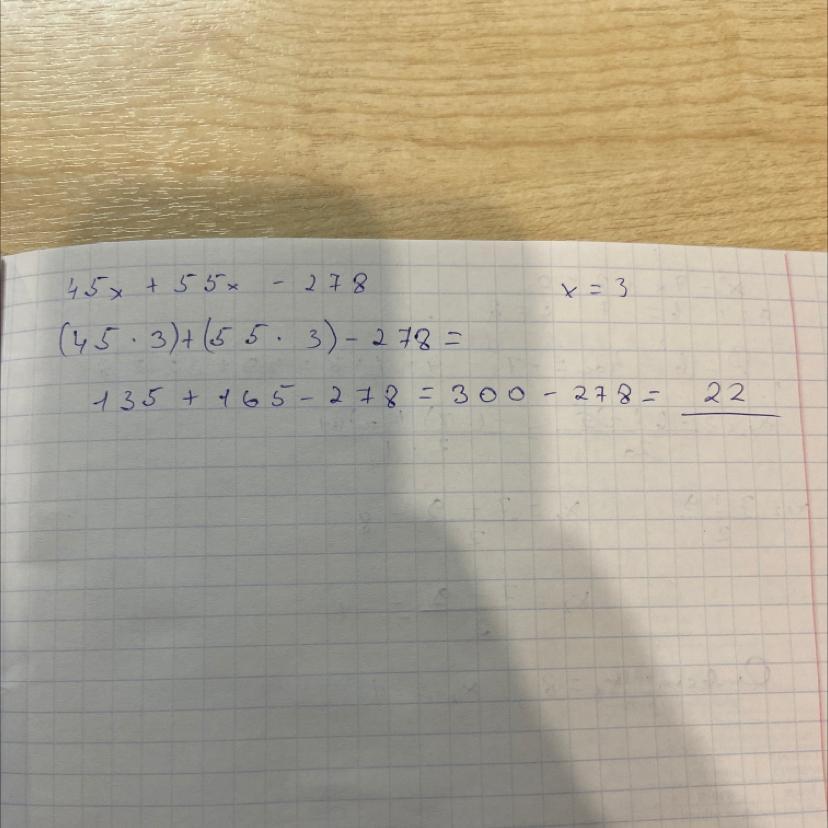 45x + 55x - 278 x = 3
(45 · 3)+(55 · 3) - 278 =
135 + 165 - 278 = 300 - 278 = 22